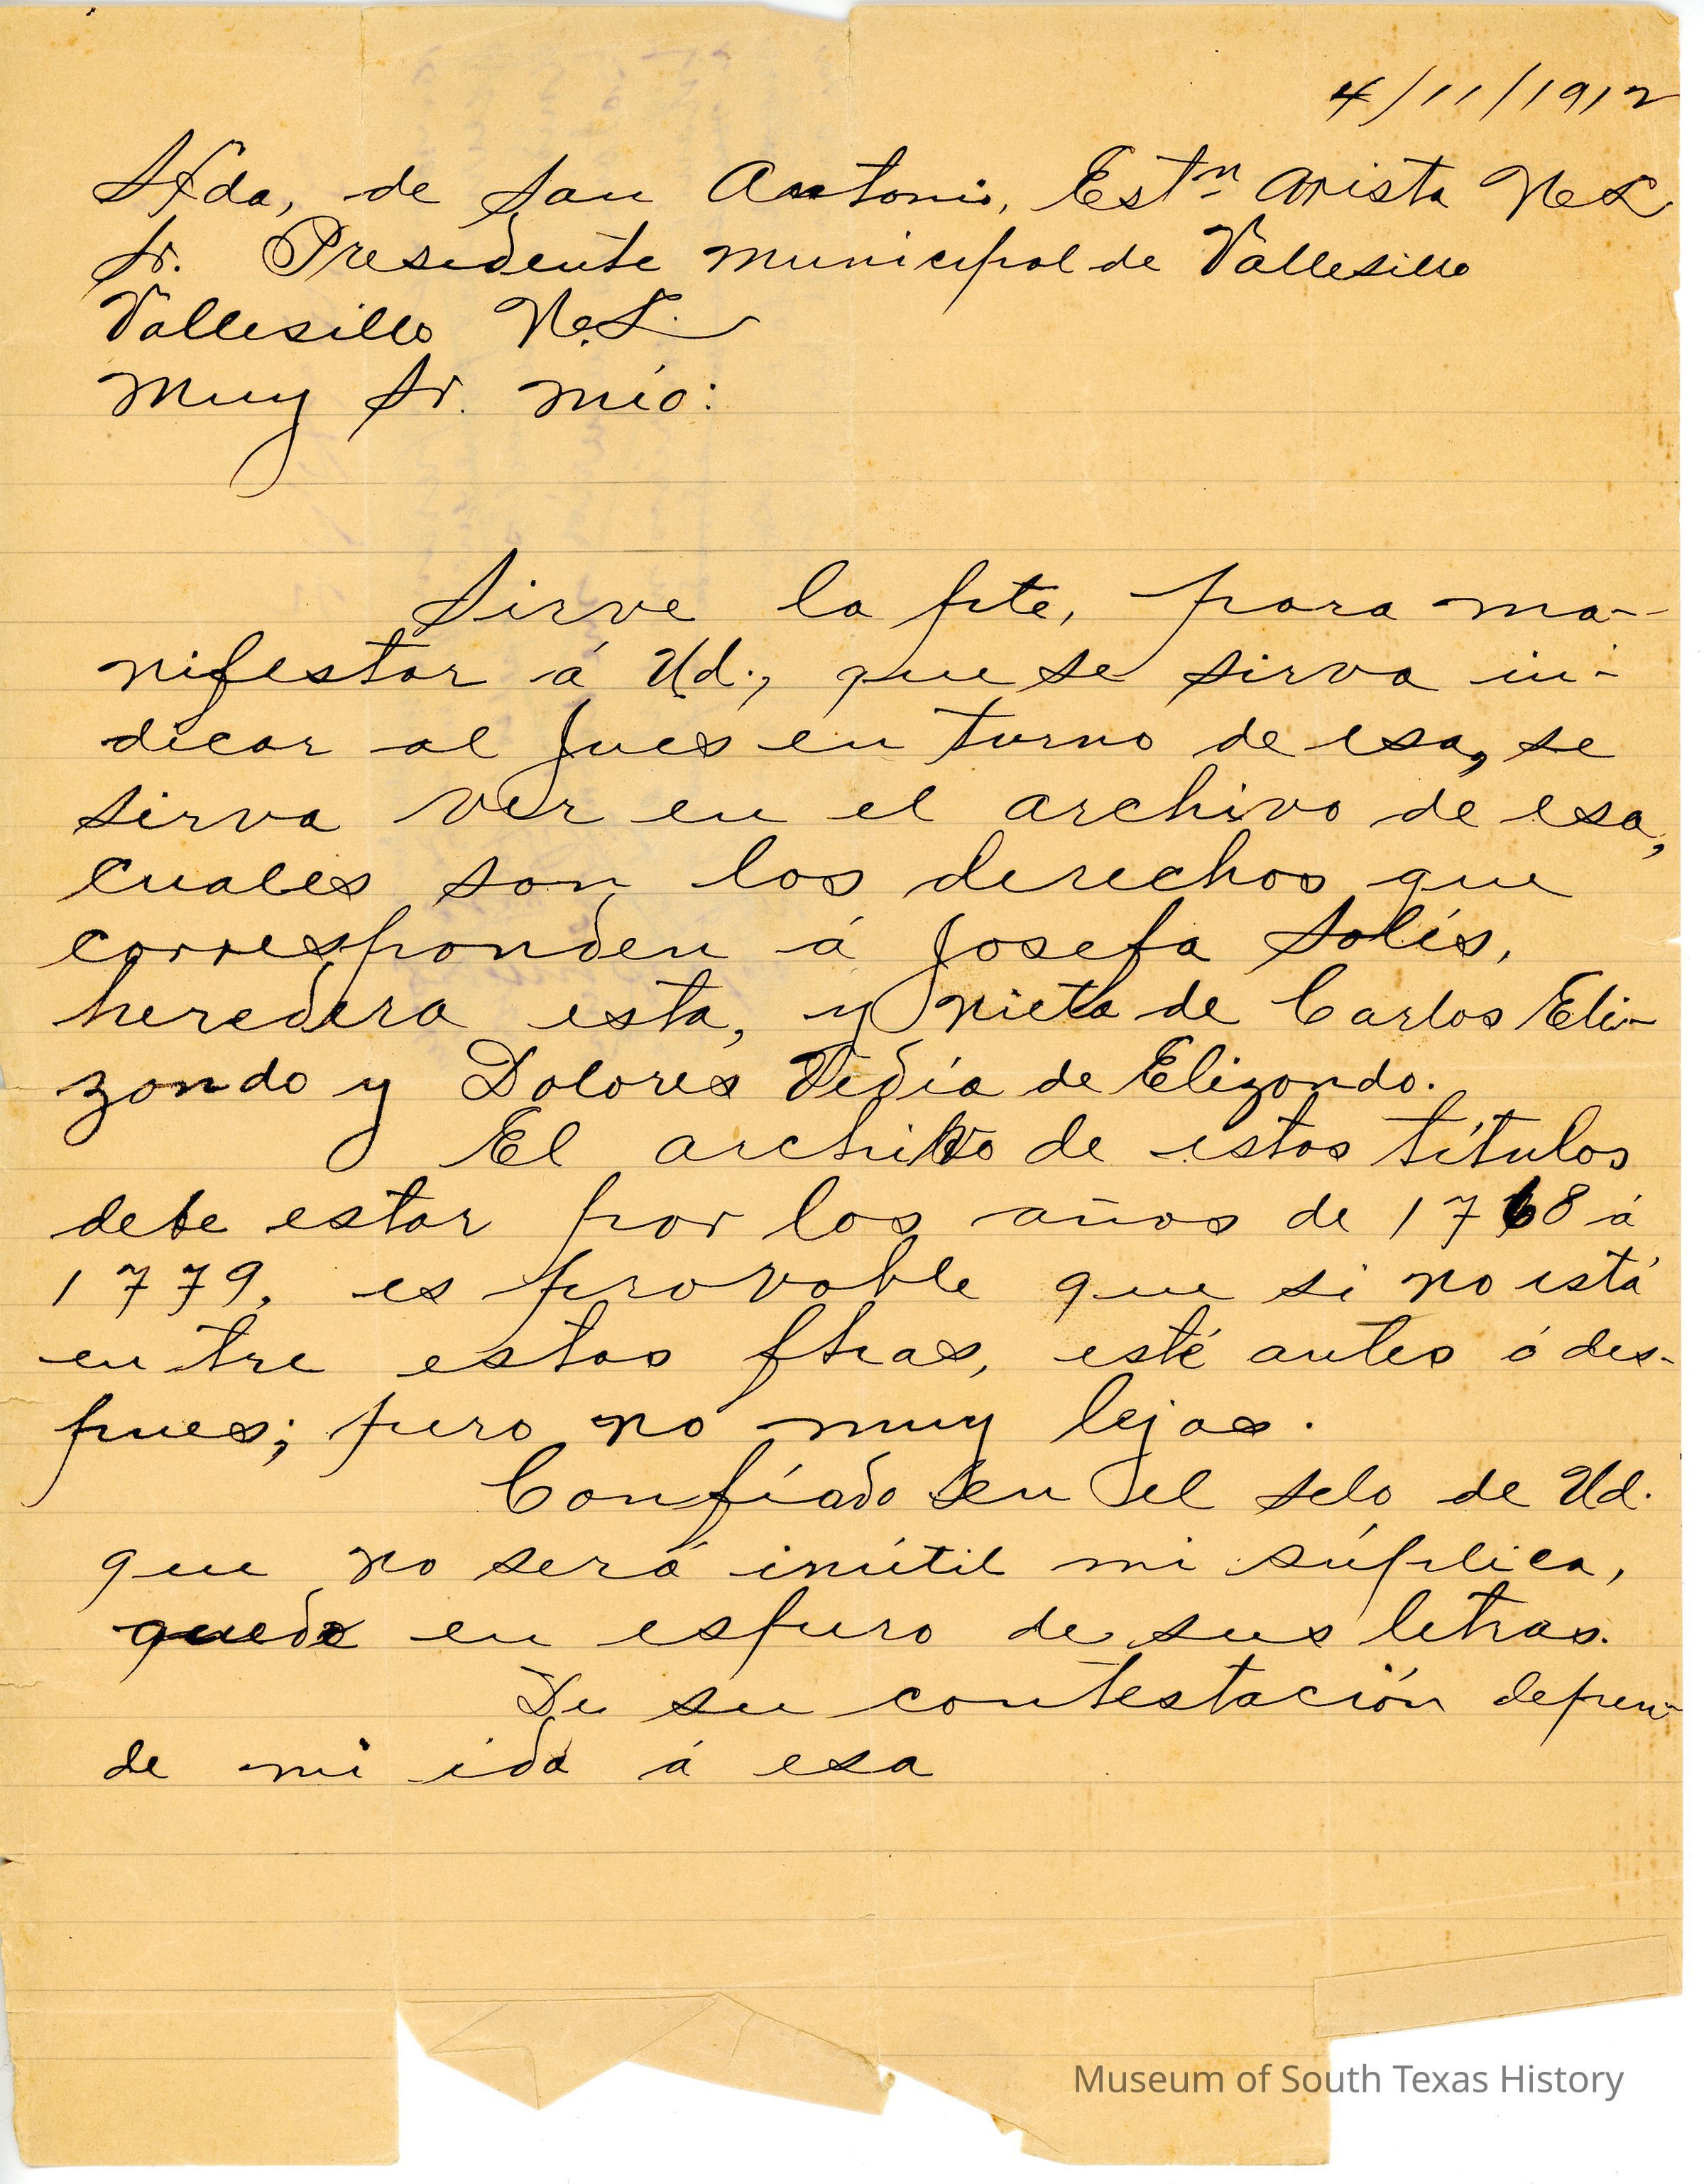 4/11/1912
Hda, de San Antonio, Estn Arista N.L
Sr. Presidente Municipal de Vallesillo
Vallesillo N.L.
Muy Sr. mío:
Sirve la pte, para ma-
nifestar á Ud., que se sirva in-
dicar al Jues en turno de esa, se
sirva ver en el archivo de esa,
cuales son los derechos que
corresponden á Josefa Solís,
heredera esta, y nieta de Carlos Eli-
zondo y Dolores Vidía de Elizondo.
El archivo de estos títulos
debe estar por los años de 1768 á
1779, es provable que si no está
entre estas fhas, esté antes ó des-
pues; pero no muy lejos.
Confíado en el selo de Ud.
que no será inútil mi súplica,
quedo en espero de sus letras.
De su contestación depen-
de mi ida á esa
Museum of South Texas History